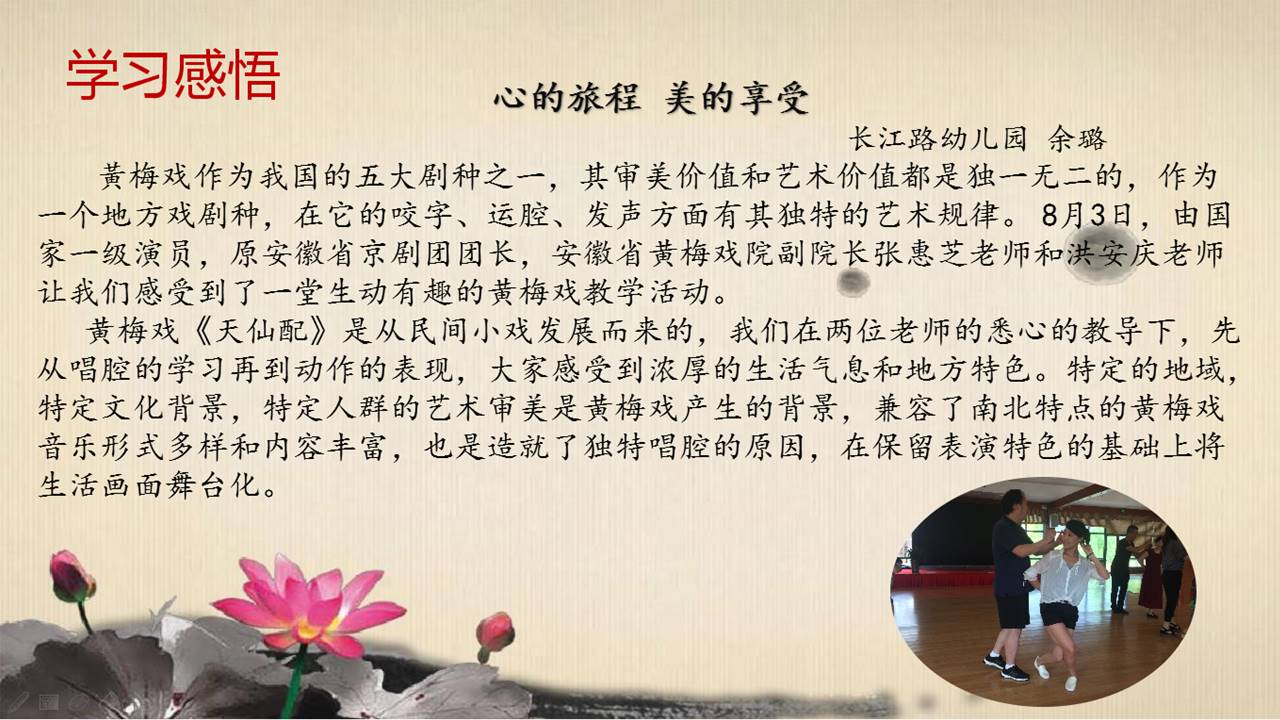 学习感悟
心的旅程 美的享受
长江路幼儿园 余璐
黄梅戏作为我国的五大剧种之一，其审美价值和艺术价值都是独一无二的，作为
一个地方戏剧种，在它的咬字、运腔、发声方面有其独特的艺术规律。8月3日，由国
家一级演员，原安徽省京剧团团长，安徽省黄梅戏院副院长张惠芝老师和洪安庆老师
让我们感受到了一堂生动有趣的黄梅戏教学活动。
黄梅戏《天仙配》是从民间小戏发展而来的，我们在两位老师的悉心的教导下，先
从唱腔的学习再到动作的表现，大家感受到浓厚的生活气息和地方特色。特定的地域，
特定文化背景，特定人群的艺术审美是黄梅戏产生的背景，兼容了南北特点的黄梅戏
音乐形式多样和内容丰富，也是造就了独特唱腔的原因，在保留表演特色的基础上将
生活画面舞台化。